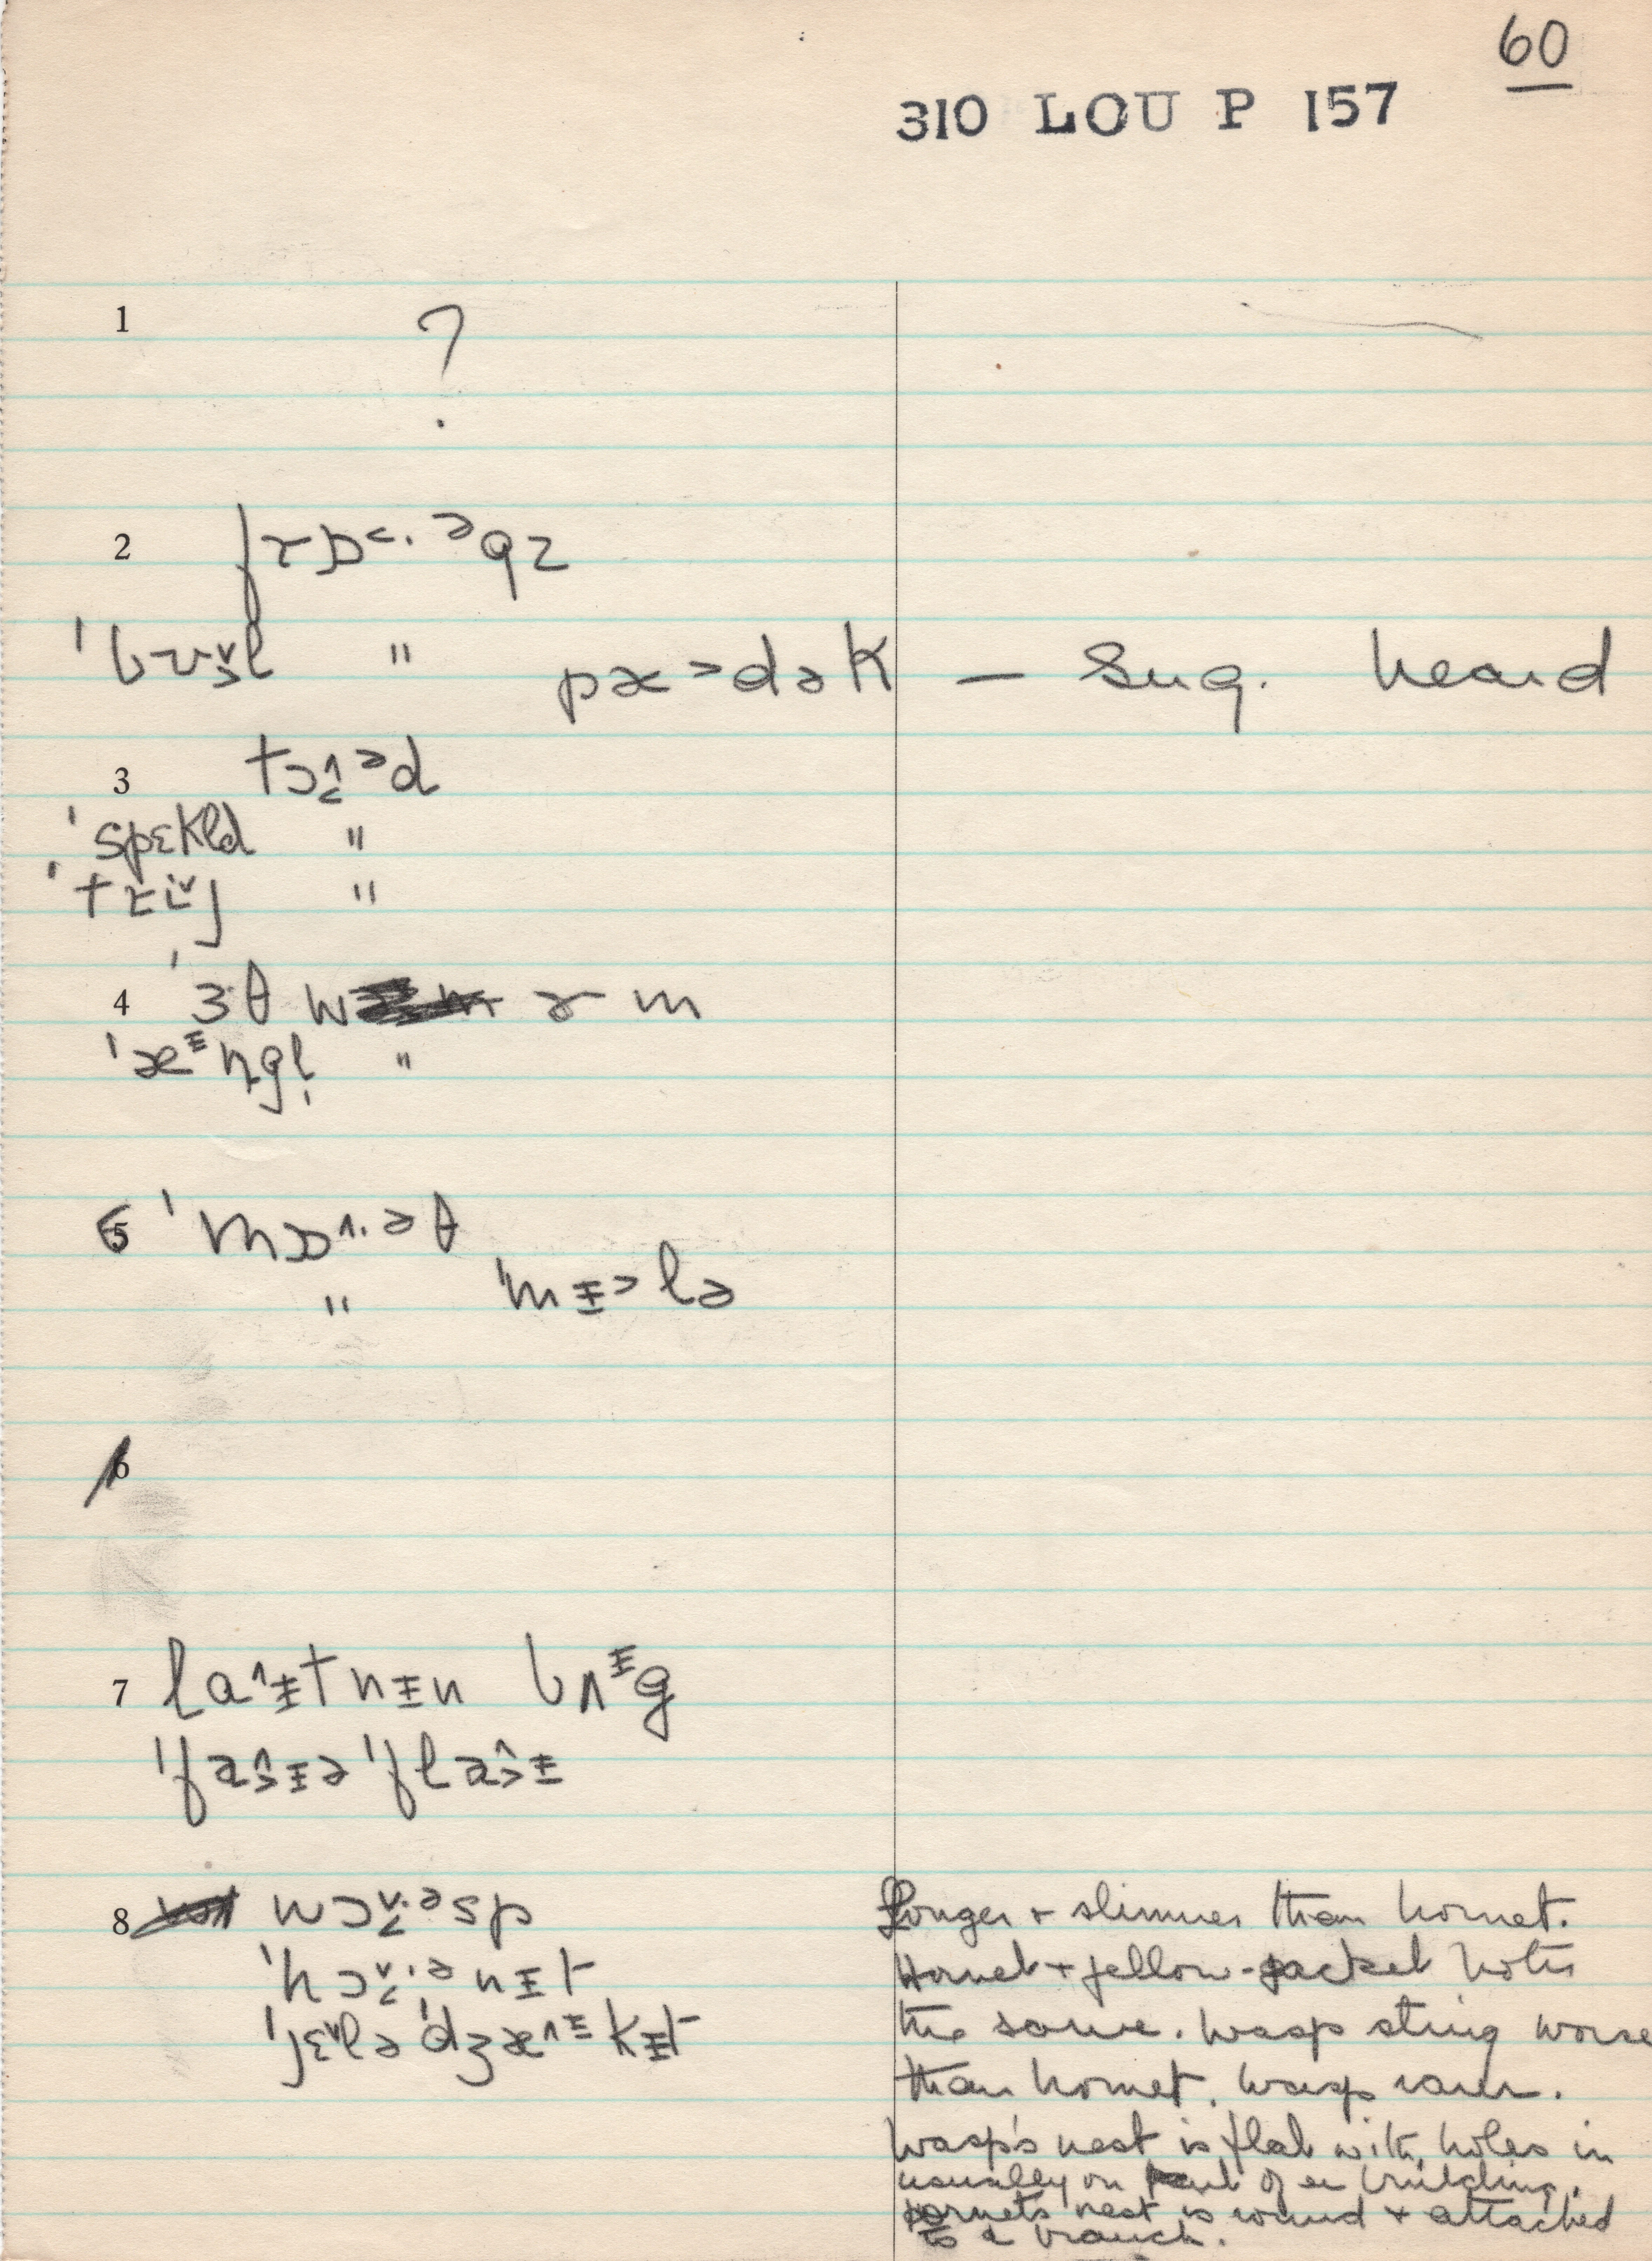 60
310 LOU P 157
1 ?
2 frɒ˂·ᵊgz
'bʊ̬l " pæ˃dək — Sug. heard
3 tɔ·ᵊd
'spɛkld "
'trɪj "
4 '3θ w ɤ m
'æᵻŋgl̩ "
5 'mɒ^·əθ
" 'mᵻ˃lə
6
7 la^ᵻtnᵻn bʌᵻg
'faᵻə 'flaᵻ
8 wɔ·ᵊsp
'hɔ·ᵊnᵻt
'jɛlə 'dʒæ^ᵻkᵻt
Longer + slimmer than hornet.
Hornet + yellow-jacket
the same. Wasp sting worse
than hornet. Wasp rarer.
Wasp's nest is flat with holes in
usually on part of a building.
hornets nest is round + attached
to a branch.